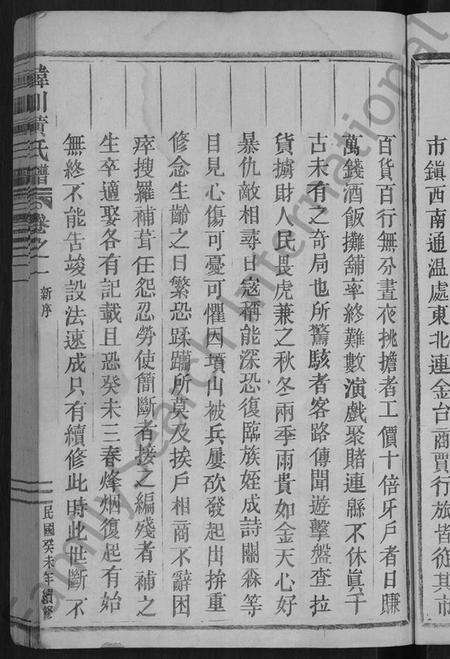 市鎮西南通溫處東北連金台商賈行旅皆從其市
百貨百行無分晝夜挑擔者工價十倍牙戶者日賺
萬錢酒飯攤舖率終難數演戲聚賭連縣不休眞千
古未有之奇局也所驚駭者客路傳聞遊擊盤查拉
貨擄財人民畏虎兼之秋冬兩季雨貴如金天心好
暴仇敵相尋日寇稱能深恐復臨族姪成詩關森等
目見心傷可憂可懼因墳山被兵屢砍發起出拚重
修念生齡之日繁恐蹂躪所莫及挨戶相商不辭困
瘁搜羅補葺任怨忍勞使簡斷者接之編殘者補之
生卒適娶各有記載且恐癸未三春烽烟復起有始
無終不能告竣設法速成只有續修此時此世斷不
川黃氏譜
卷之一
新序
民國癸未年續修
FamilySearch International